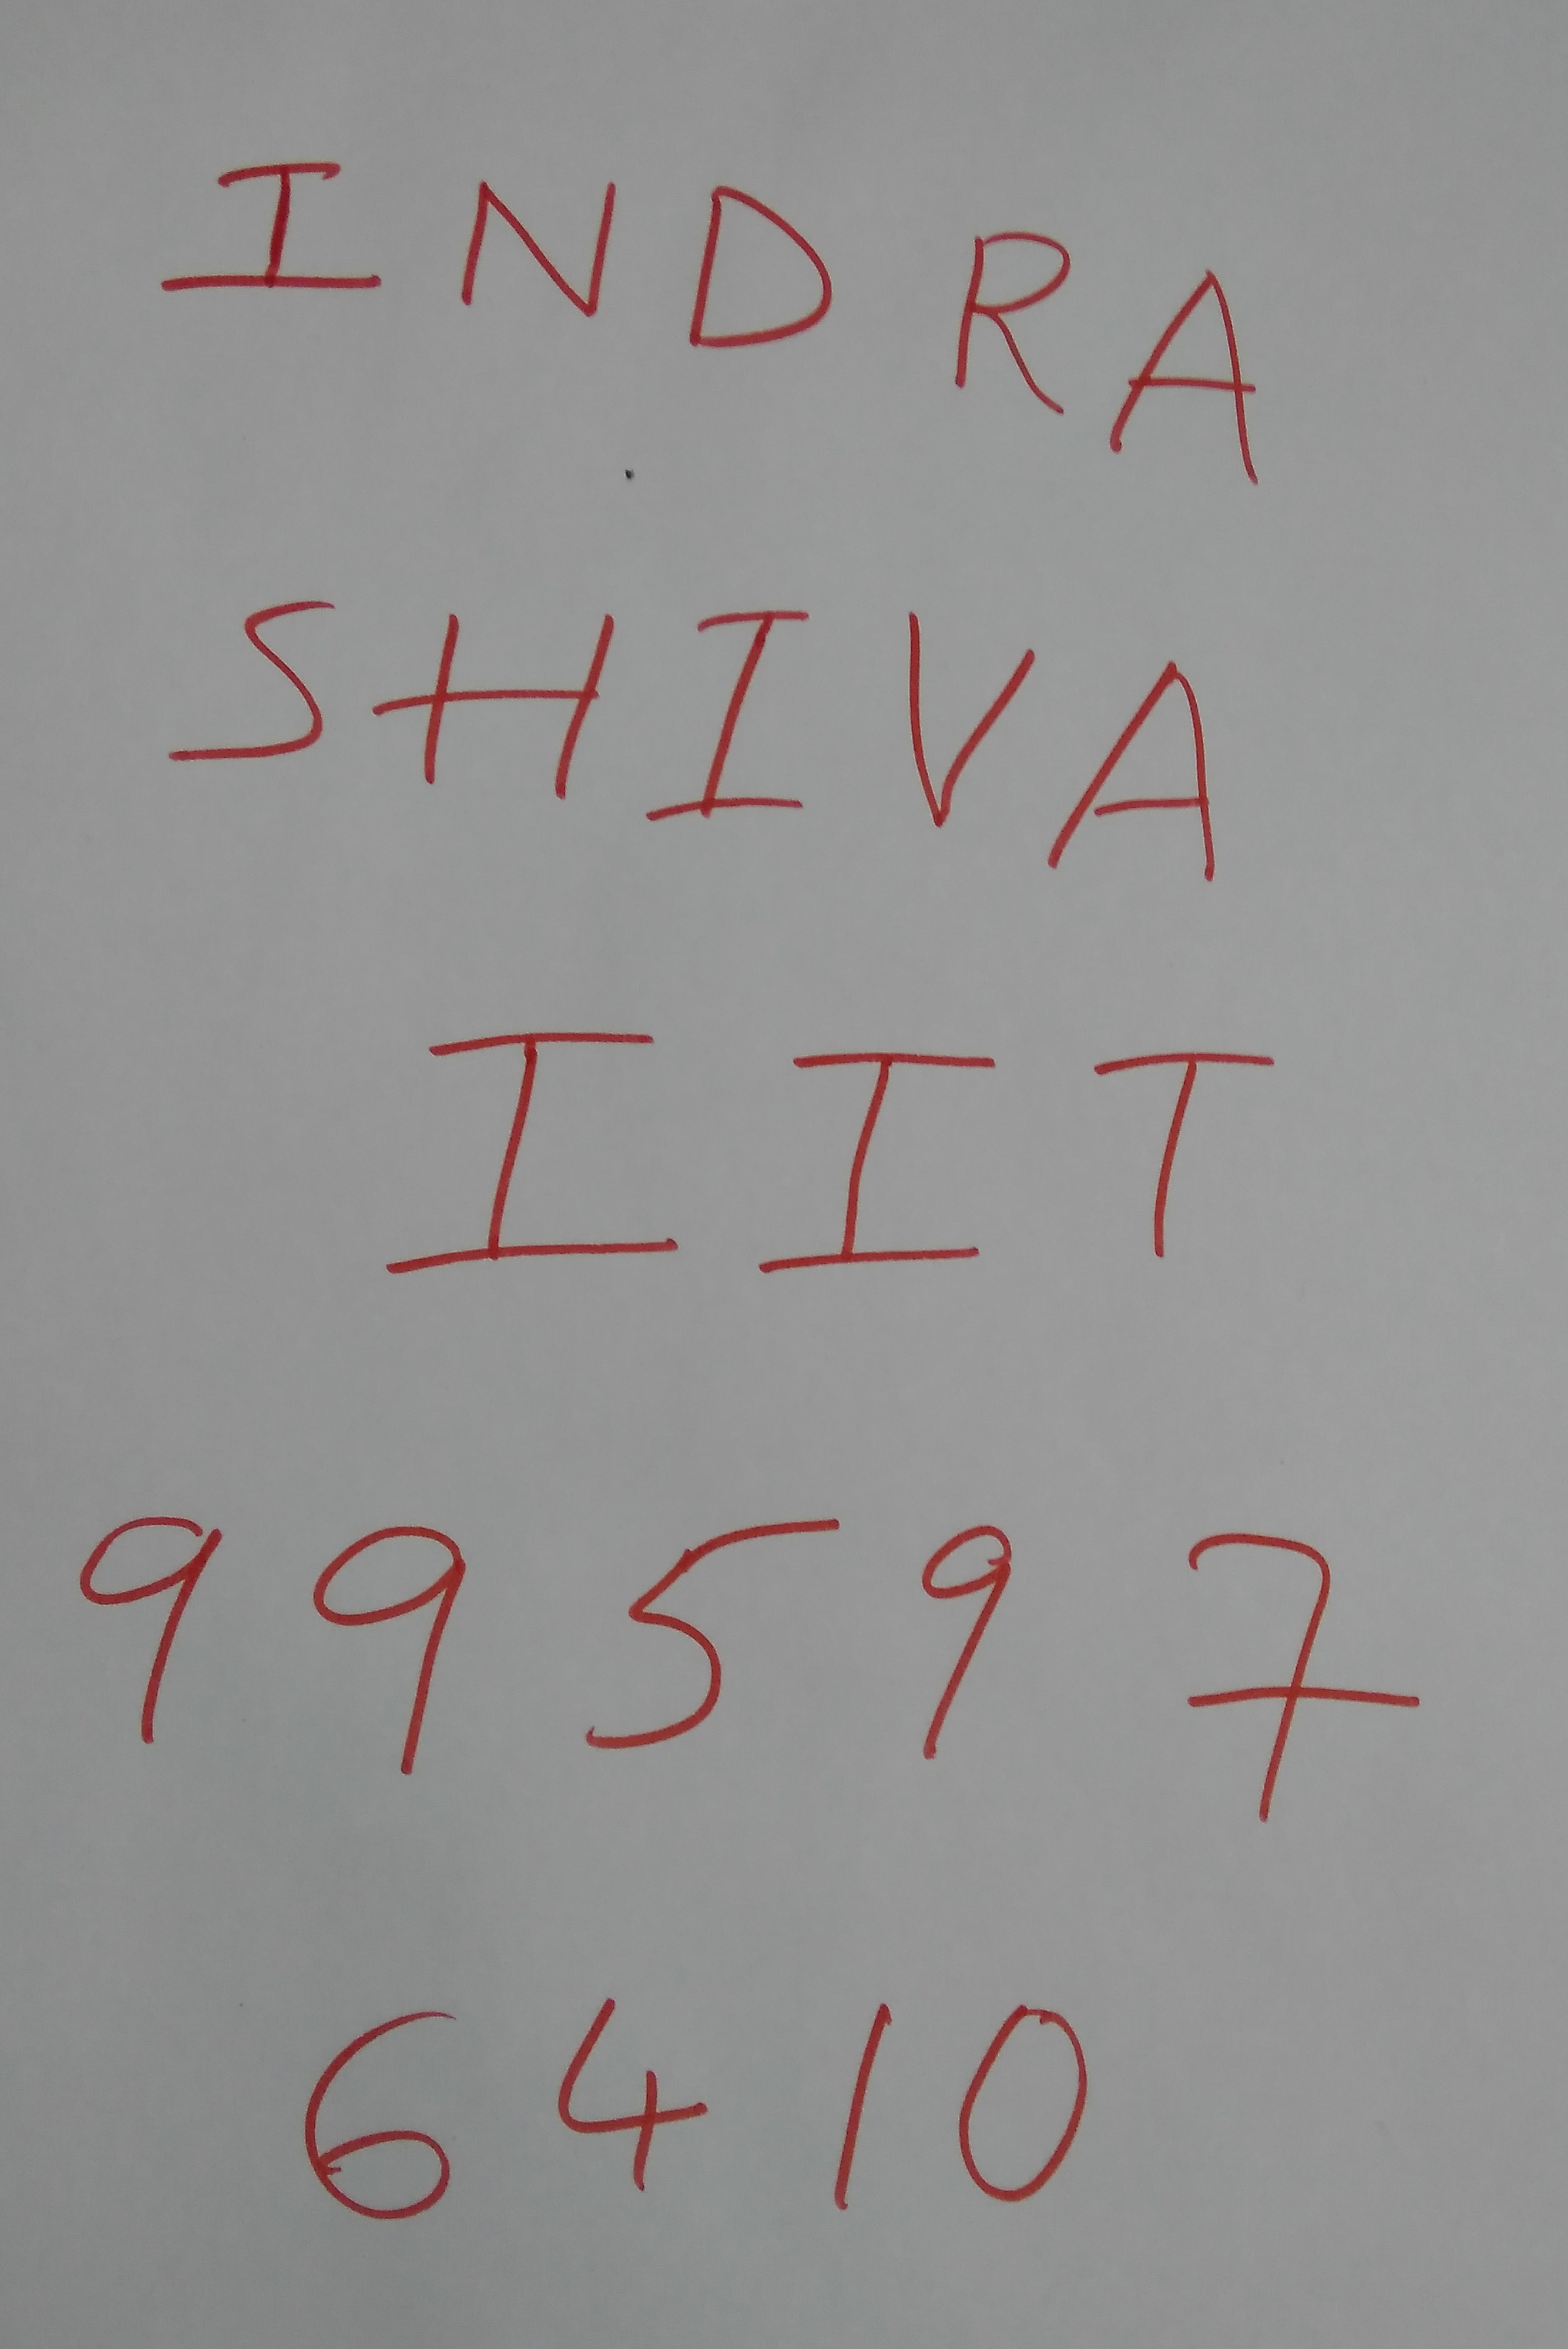 INDRA
SHIVA
IIT
99597
6410